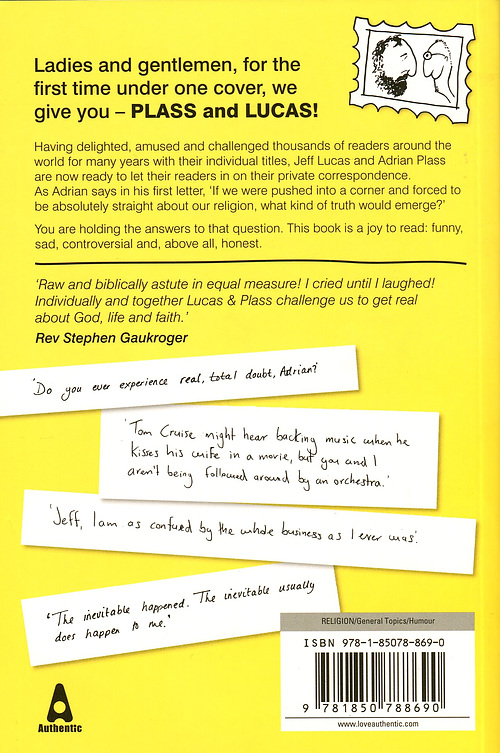 Ladies and gentlemen, for the
first time under one cover, we
give you – PLASS and LUCAS!
Having delighted, amused and challenged thousands of readers around the
world for many years with their individual titles, Jeff Lucas and Adrian Plass
are now ready to let their readers in on their private correspondence.
As Adrian says in his first letter, 'If we were pushed into a corner and forced to
be absolutely straight about our religion, what kind of truth would emerge?'
You are holding the answers to that question. This book is a joy to read: funny,
sad, controversial and, above all, honest.
'Raw and biblically astute in equal measure! I cried until I laughed!
Individually and together Lucas & Plass challenge us to get real
about God, life and faith.'
Rev Stephen Gaukroger
'Do you ever experience real, total doubt, Adrian?'
'Tom Cruise might hear backing music when he
kisses his wife in a movie, but you and I
aren't being followed around by an orchestra.'
'Jeff, I am as confused by the whole business as I ever was'.
'The inevitable happened. The inevitable usually
does happen to me.'
RELIGION/General Topics/Humour
ISBN 978-1-85078-869-0
9 781850 788690
www.loveauthentic.com
Authentic